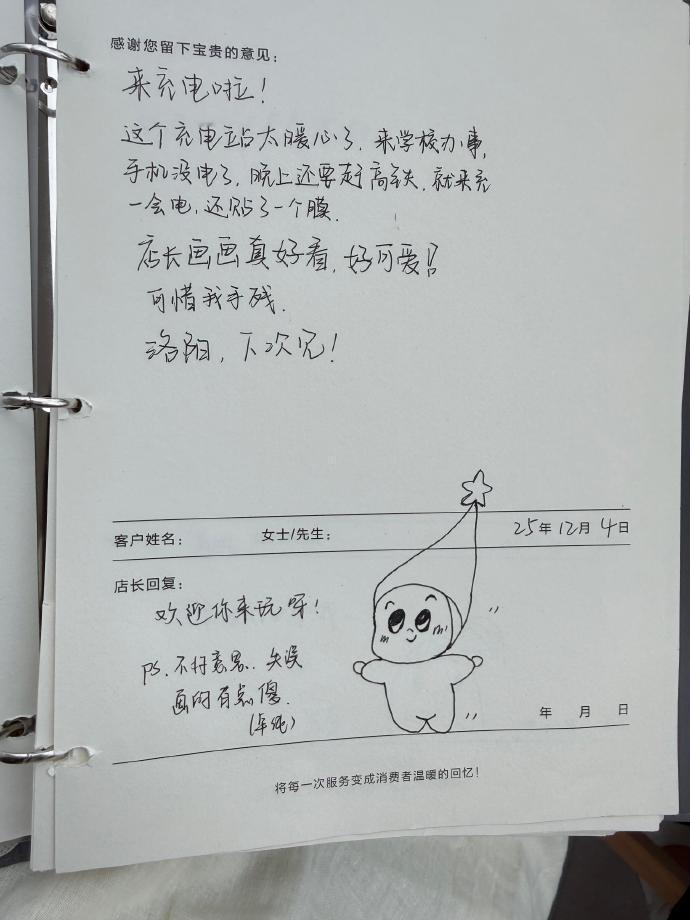 感谢您留下宝贵的意见：
来充电啦！
这个充电站太暖心了，来学校办事，
手机没电了，晚上还要赶高铁，就来充
一会电，还贴了一个膜.
店长画画真好看，好可爱！！
可惜我手残.
洛阳，下次见！
客户姓名： 女士/先生： 25年12月4日
店长回复：
欢迎你来玩呀！
PS.不好意思.失误
画的有点傻.
年 月 日
将每一次服务变成消费者温暖的回忆！